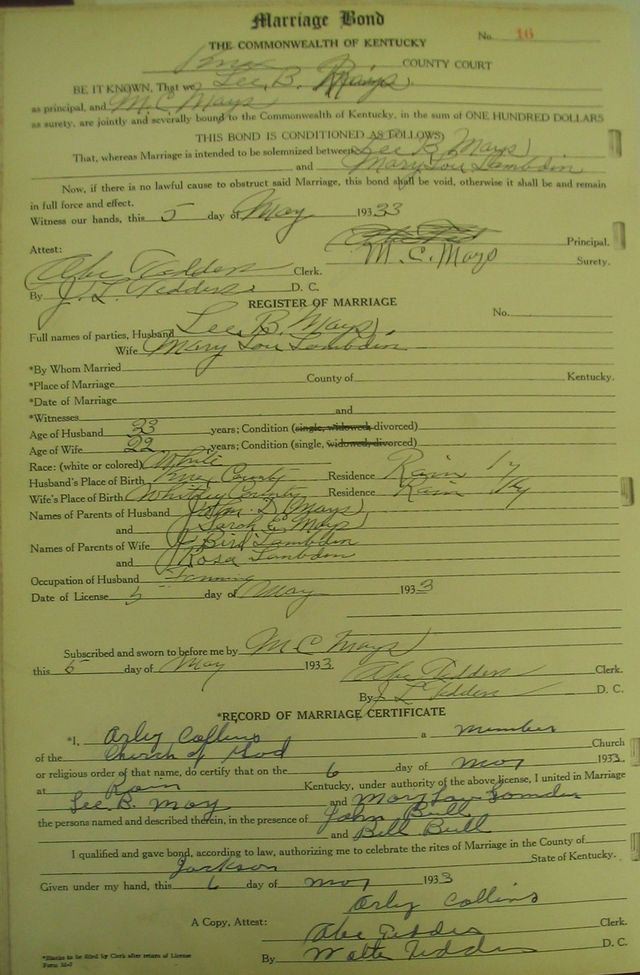 Marriage Bond
No. 16
THE COMMONWEALTH OF KENTUCKY
COUNTY COURT
BE IT KNOWN, That we Lee. B. Mays
as principal, and M. C. Mays
as surety, are jointly and severally bound to the Commonwealth of Kentucky, in the sum of ONE HUNDRED DOLLARS
THIS BOND IS CONDITIONED AS FOLLOWS:
That, whereas Marriage is intended to be solemnized between Lee B. Mays
and Mary Lou Lambdin
Now, if there is no lawful cause to obstruct said Marriage, this bond shall be void, otherwise it shall be and remain
in full force and effect.
Witness our hands, this 5 day of May 193 33
Principal.
Attest: M. C. Mays Surety.
Abe Tedders Clerk.
By J. L. Tedders D. C.
REGISTER OF MARRIAGE
No.
Full names of parties, Husband Lee. B. Mays
Wife Mary Lou Lambdin
*By Whom Married
*Place of Marriage County of Kentucky.
*Date of Marriage
*Witnesses and
Age of Husband 33 years; Condition (single, widowed, divorced)
Age of Wife 22 years; Condition (single, widowed, divorced)
Race: (white or colored) White
Husband's Place of Birth County Residence Rain Ky
Wife's Place of Birth Whitley County Residence Rain Ky
Names of Parents of Husband D. Mays
and Sarah E. Mays
Names of Parents of Wife J. Bird Lambdin
and Rosa Lambdin
Occupation of Husband Farming
Date of License 5 day of May 193 3
Subscribed and sworn to before me by M C Mays
this 5 day of May 193 3. Abe Tedders Clerk.
By J L Tedders D. C.
*RECORD OF MARRIAGE CERTIFICATE
*I, Arley Collins a member
of the Church of God Church
or religious order of that name, do certify that on the 6 day of May 193 3.
at Rain Kentucky, under authority of the above license, I united in Marriage
Lee. B. May and Mary Lou
the persons named and described therein, in the presence of John Bull
and Bill Bull
I qualified and gave bond, according to law, authorizing me to celebrate the rites of Marriage in the County of
Jackson State of Kentucky.
Given under my hand, this 6 day of May 193 3
Arley Collins
A Copy, Attest: Abe Tedders Clerk.
By Walter Tedders D. C.
*Blanks to be filled by Clerk after return of License